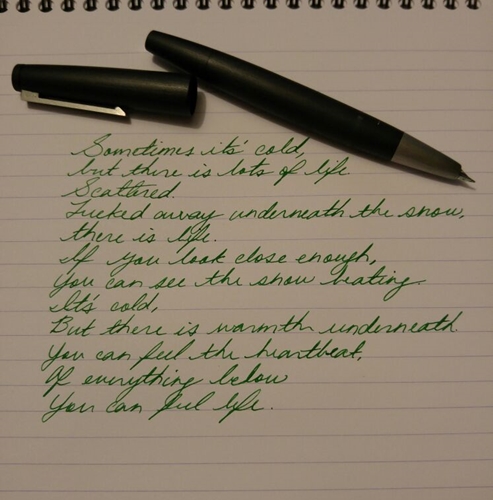 Sometimes it's cold,
but there is lots of life.
Scattered.
Tucked away underneath the snow,
there is life.
If you look close enough,
you can see the snow beating.
It's cold,
But there is warmth underneath.
You can feel the heartbeat,
Of everything below
You can feel life.